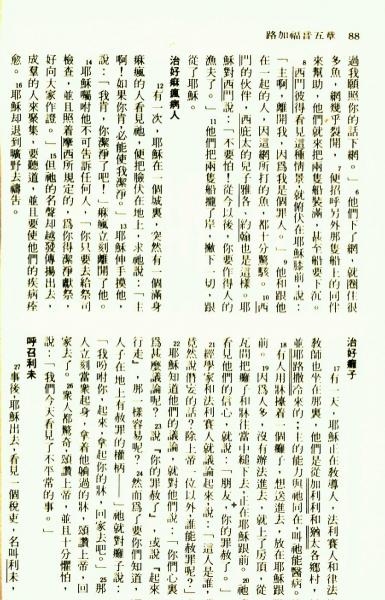 88　路加福音五章
過我願照你的話下網。」 6他們下了網,就圈住很
多魚,網幾乎裂開, 7便招呼另外那隻船上的同伴
來幫助,他們就來把兩隻船裝滿,甚至船要下沉。
8西門彼得看見這種情景,就俯伏在耶穌膝前,說:
「主啊,離開我,因爲我是個罪人。」 9他和跟他
在一起的人,因這網打的魚,都十分驚駭。 10西
門的伙伴,西庇太的兒子雅各、約翰也是這樣。耶
穌對西門說:「不要怕!從今以後,你要作得人的
漁夫了。」 11他們把兩隻船攏了岸,撇下一切,跟
從了耶穌。
治好痲瘋病人
12有一次,耶穌在一個城裏,突然有一個滿身
痲瘋的人看見祂,便把臉伏在地上,求祂說:「主
啊!如果你肯,必能使我潔淨。」 13耶穌伸手摸他,
說:「我肯,你潔淨了吧!」痲瘋立刻離開了他。
14耶穌囑咐他不可告訴任何人,「你只要去給祭司
檢查,並且照着摩西所規定的,爲你得潔淨獻祭,
好向大家作證。」 15但祂的名聲却越發傳揚出去,
成羣的人來聚集,要聽道,並且要使他們的疾病痊
愈。 16耶穌却退到曠野去禱告。
治好癱子
17有一天,耶穌正在教導人,法利賽人和律法
教師也坐在那裏,他們是從加利利和猶太各鄉村,
並耶路撒冷來的;主的能力與祂同在,叫祂能醫病。
18有人用牀擡着一個癱子,想送進去,放在耶穌跟
前。 19因爲人多,沒有辦法進去,就上了房頂,從
瓦間把癱子和牀往當中縋下去,正在耶穌跟前。 20祂
看見他們的信心,就說:「朋友,你的罪赦了。」
21經學家和法利賽人就議論起來說:「這人是誰,
竟然說僭妄的話?除上帝一位以外,誰能赦罪呢?」
22耶穌知道他們的議論,就對他們說:「你們心裏
爲甚麼議論呢? 23說『你的罪赦了』,或說『起來
行走』,那一樣容易呢? 24然而爲了要你們知道,
人子在地上有赦罪的權柄——」祂就對癱子說:
「我吩咐你,起來,拿起你的牀,回家去吧。」 25那
人立刻當衆起身,拿着他躺過的牀,頌讚上帝,回
家去了。 26衆人都驚奇,頌讚上帝,並且十分懼怕,
說:「我們今天看見了不平常的事。」
呼召利未
27事後,耶穌出去,看見一個稅吏,名叫利未